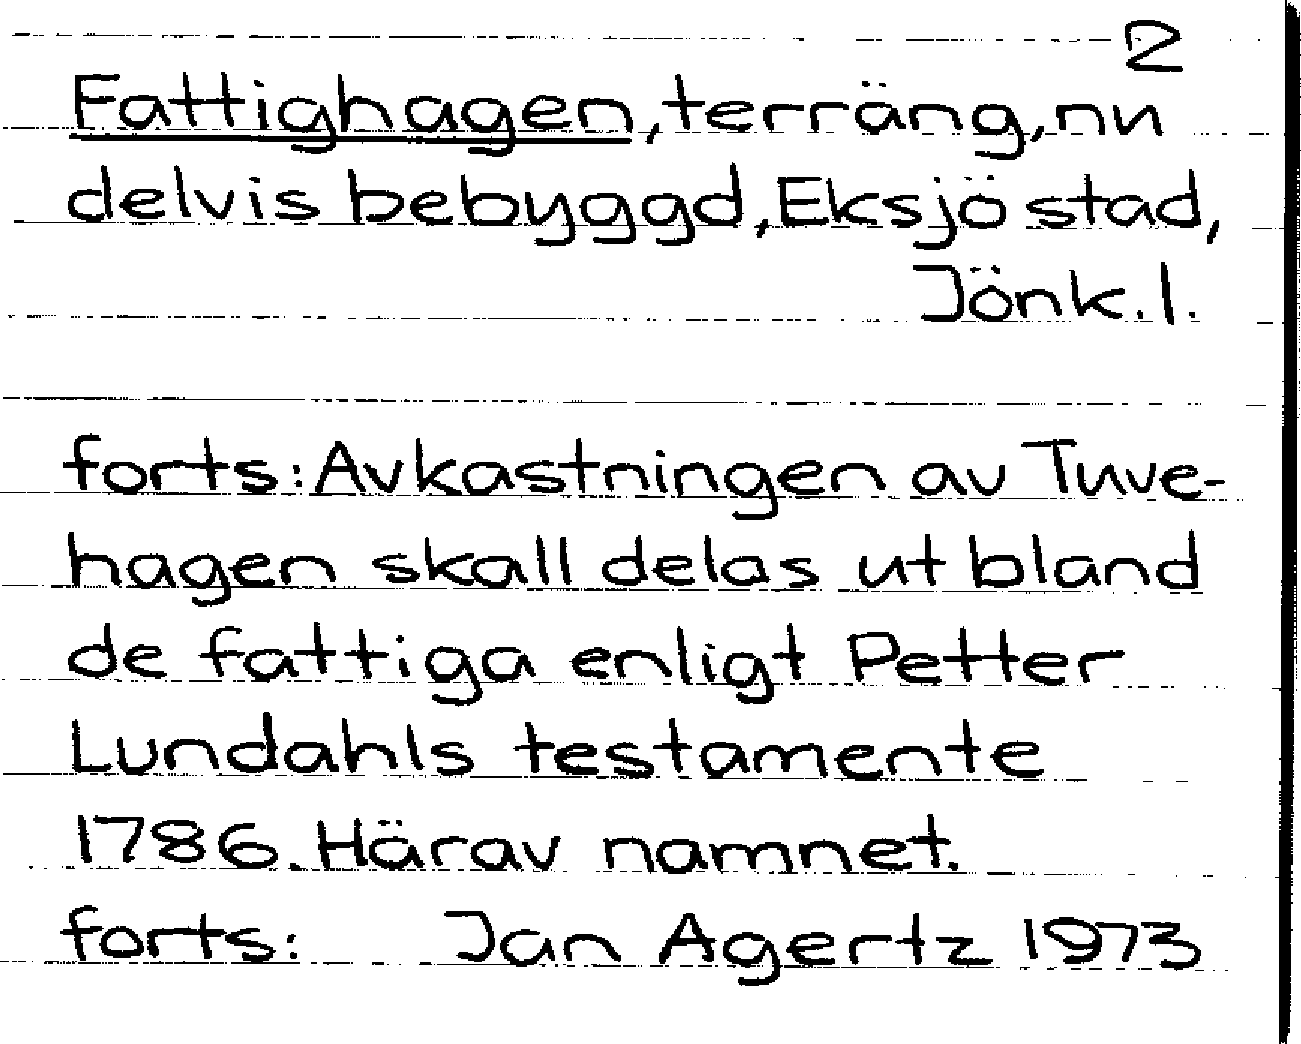 2
Fattighagen, terräng, nu
delvis bebyggd, Eksjö stad,
Jönk. l.
forts: Avkastningen av Tuve-
hagen skall delas ut bland
de fattiga enligt Petter
Lundahls testamente
1786. Härav namnet.
forts: Jan Agertz 1973